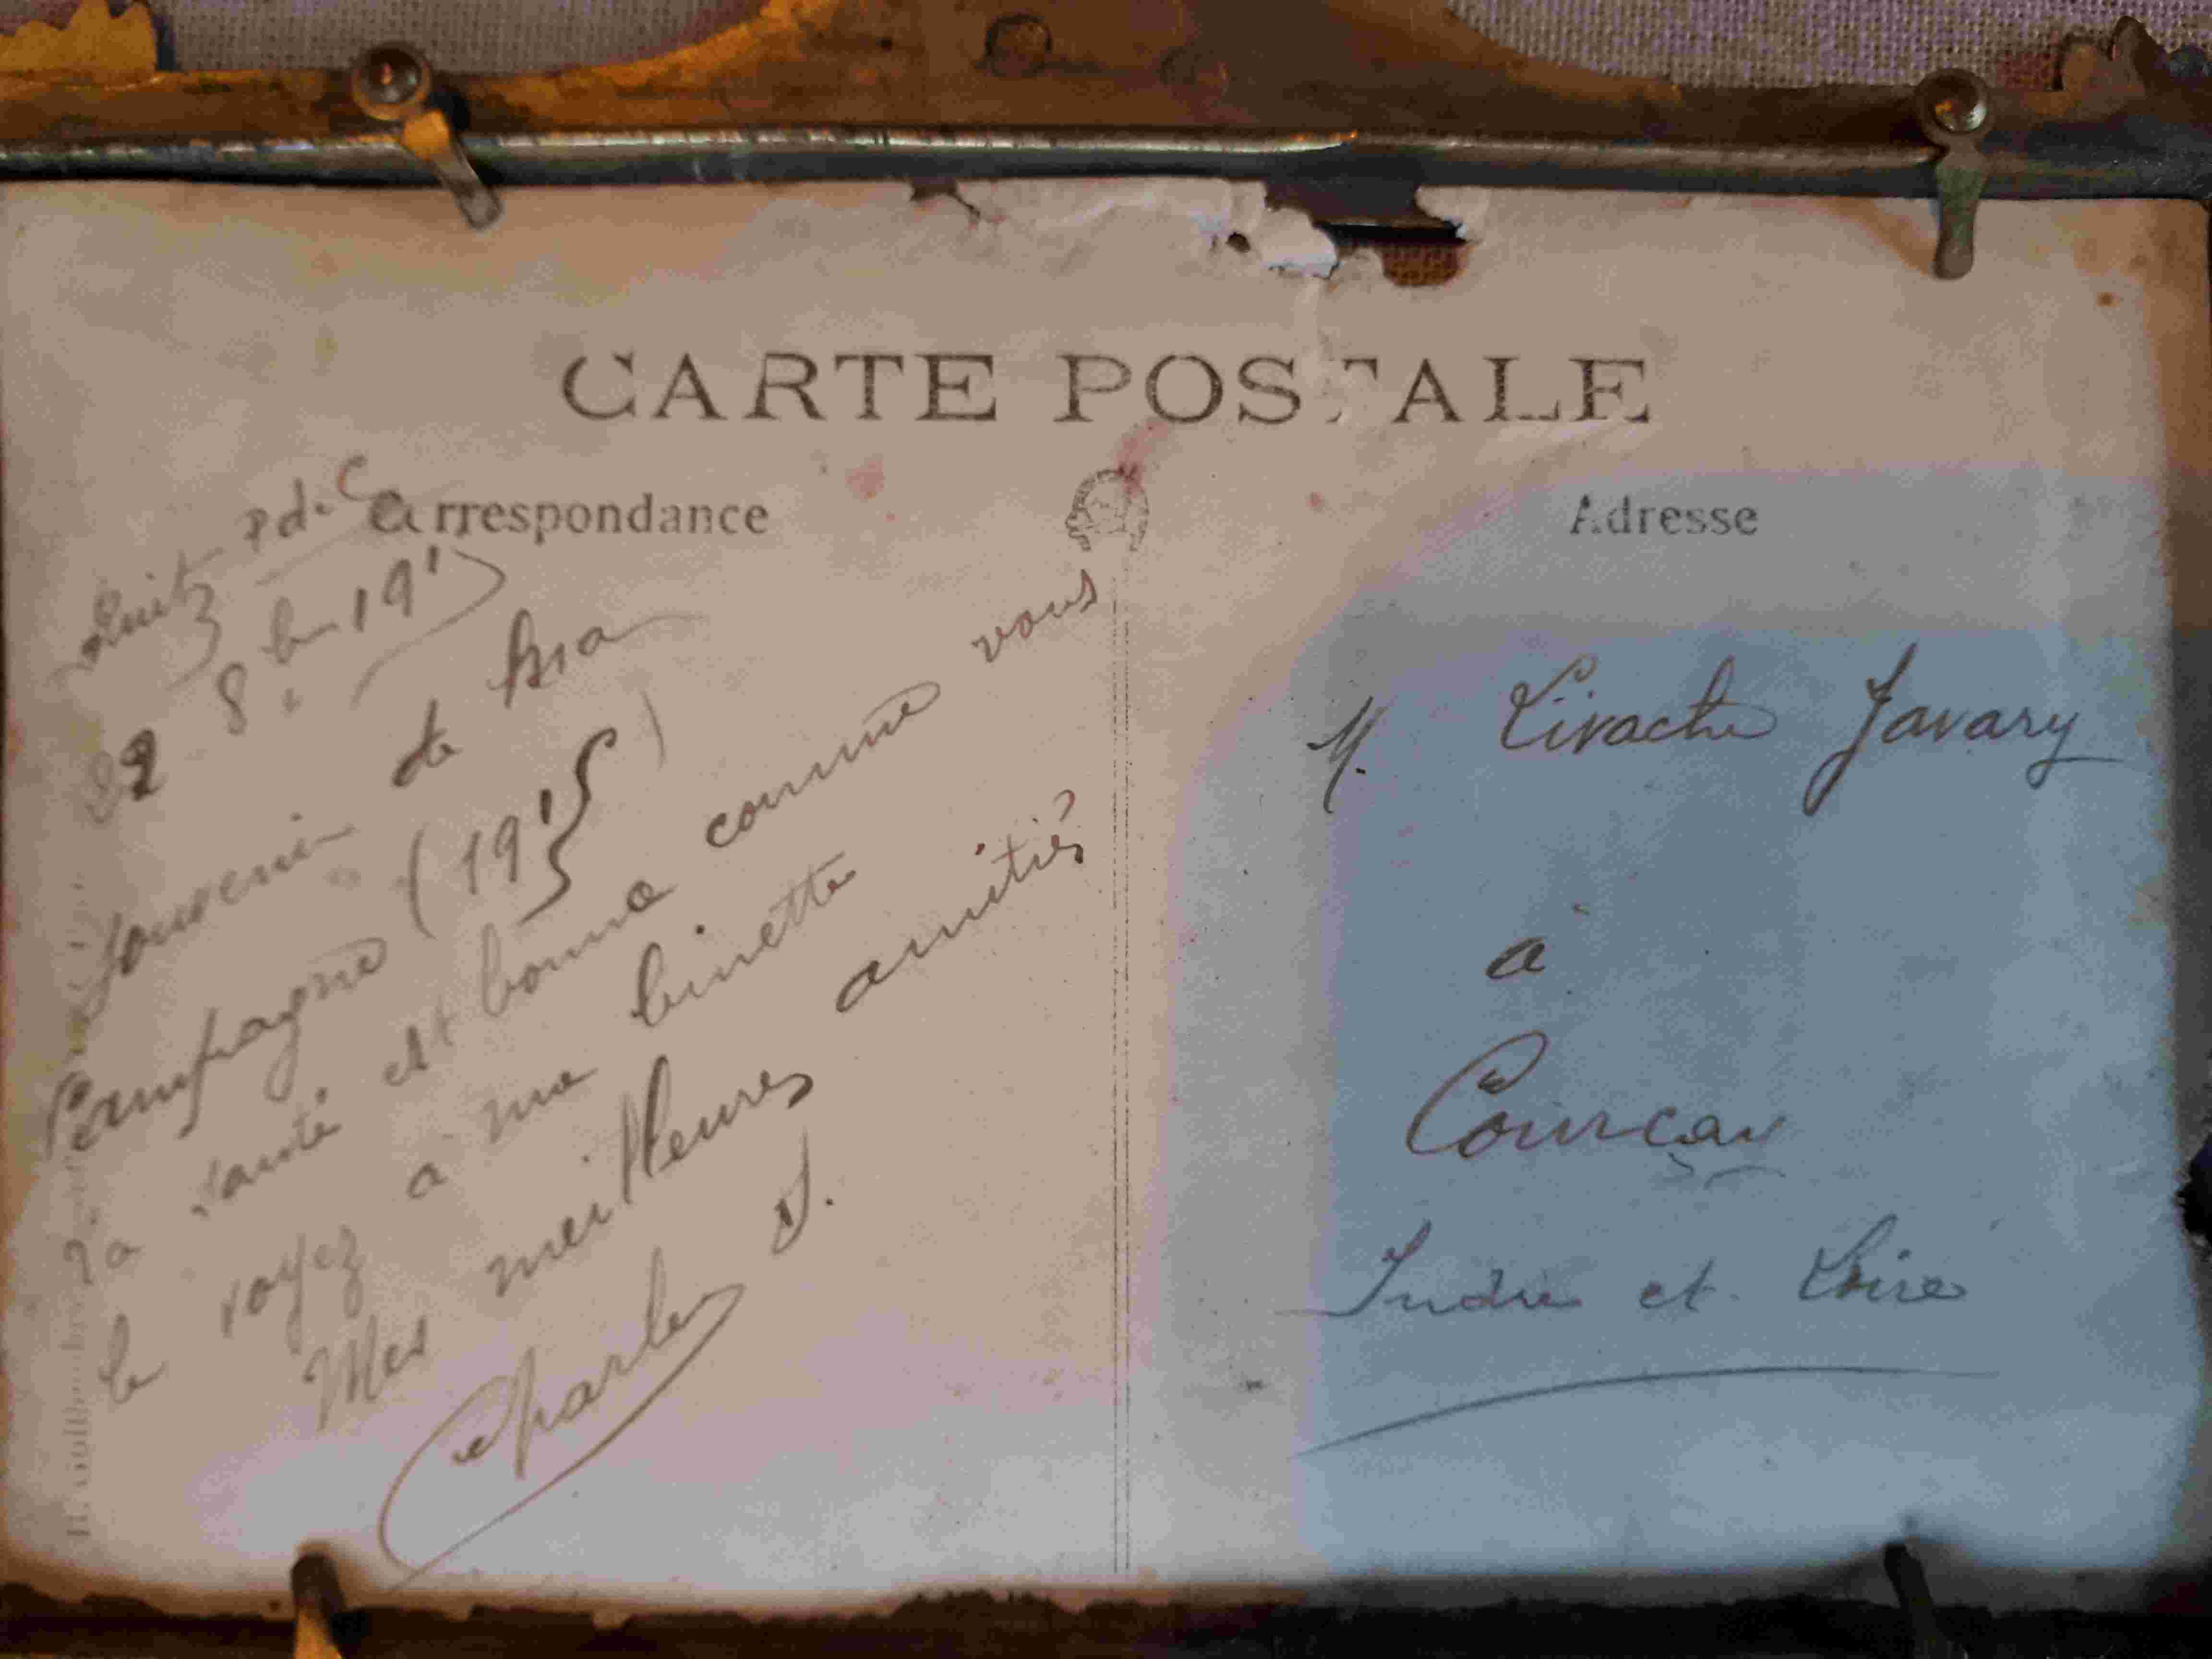 CARTE POSTALE
Correspondance
Adresse
P. d. C.
22 8bre 1915
Souvenir de ma
Campagne (1915)
La santé est bonne comme vous
le voyez à ma binette
Mes meilleures amitiés
Charles S.
M. Livache Javary
à
Courçay
Indre et Loire